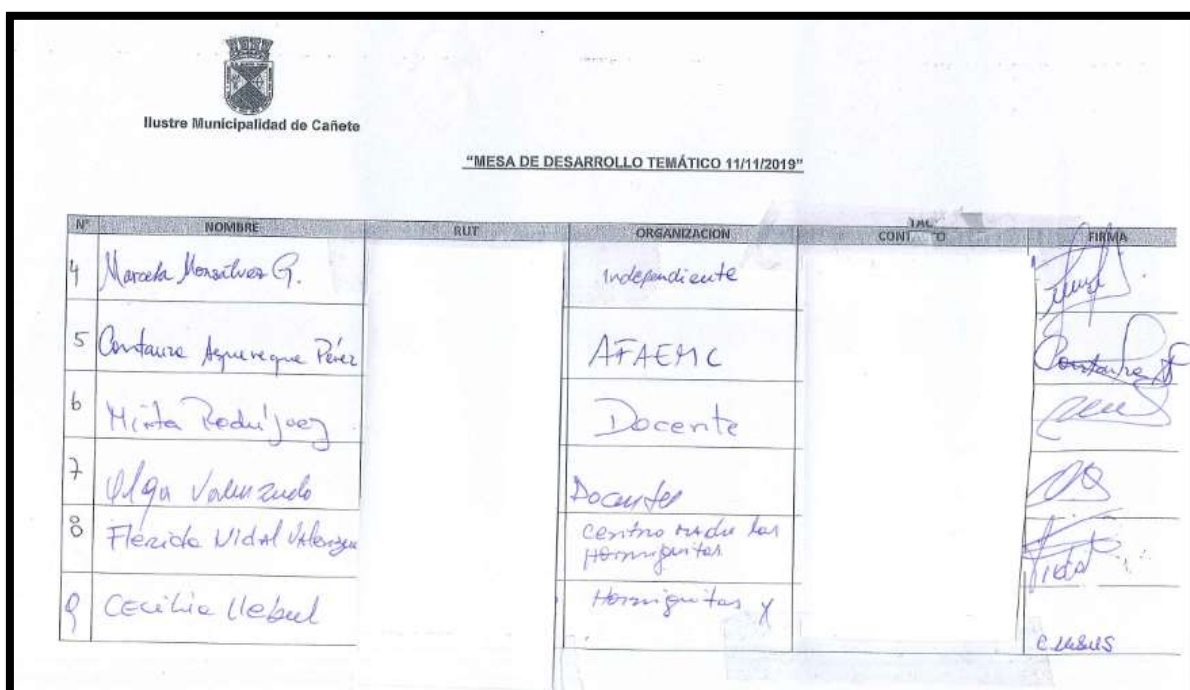 Ilustre Municipalidad de Cañete
"MESA DE DESARROLLO TEMÁTICO 11/11/2019"
N° NOMBRE RUT ORGANIZACION CONTACTO FIRMA
4 Marcela Monsalvez G. Independiente
5 Constanza Aguereque Pérez AFAEMC Constanza
6 Mirta Rodríguez Docente
7 Olga Valenzuela Docentes
8 Flerida Vidal Valenzuela Centro Madre las
Hormiguitas Vidal
9 Cecilia Hormiguitas